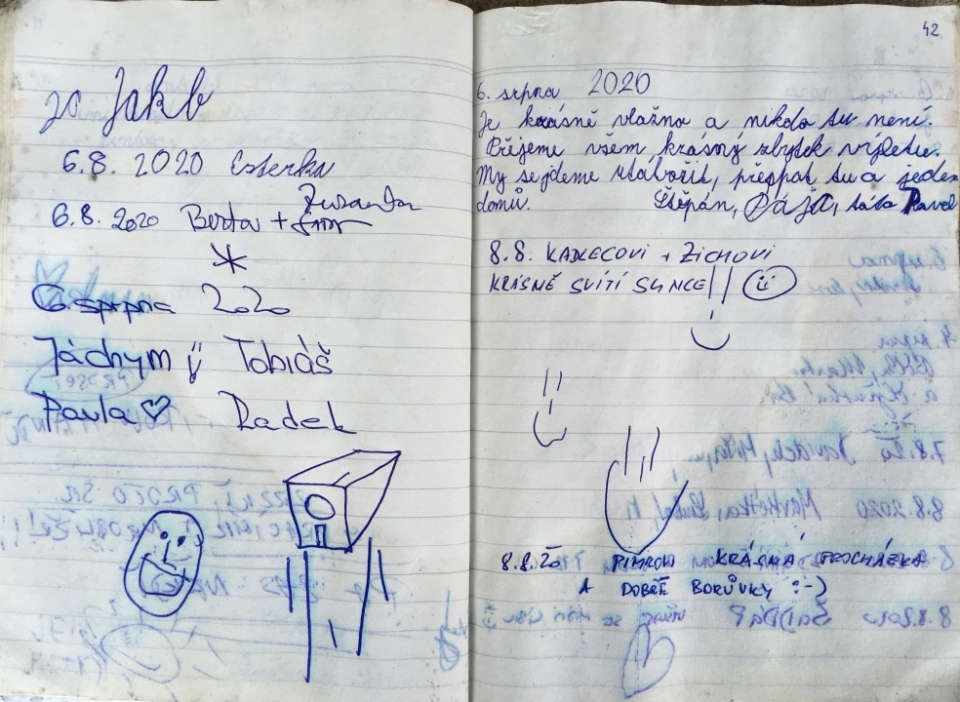 Jakb
6.8. 2020 Esterka
6.8. 2020 Berta + Zuzanka
6. srpna 2020
Jáchym Tobiáš
Pavla ♡ Radek
42
6. srpna 2020
Je krásně vlažno a nikdo tu není.
Přejeme všem krásný zbytek výletu.
My se jdeme utábořit, přespat tu a jedem
domů. Štěpán, Pája, táta Pavel
8.8. KADLECOVI + ZICHOVI
KRÁSNĚ SVÍTÍ SLNCE!!
8.8. 20 KRÁSNÁ PROCHÁZKA
A DOBRÉ BORŮVKY :-)